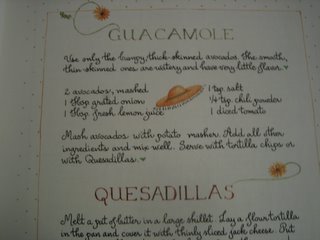 GUACAMOLE
Use only the bumpy, thick-skinned avocados. The smooth,
thin-skinned ones are watery and have very little flavor.
2 avocados, mashed
1 Tbsp grated onion
1 Tbsp. fresh lemon juice
1 tsp salt
1/4 tsp chili powder
1 diced tomato
Mash avocados with potato masher. Add all other
ingredients and mix well. Serve with tortilla chips or
with Quesadillas.
QUESADILLAS
Melt a pat of butter in a large skillet. Lay a flour tortilla
in the pan and cover it with thinly sliced jack cheese. Put